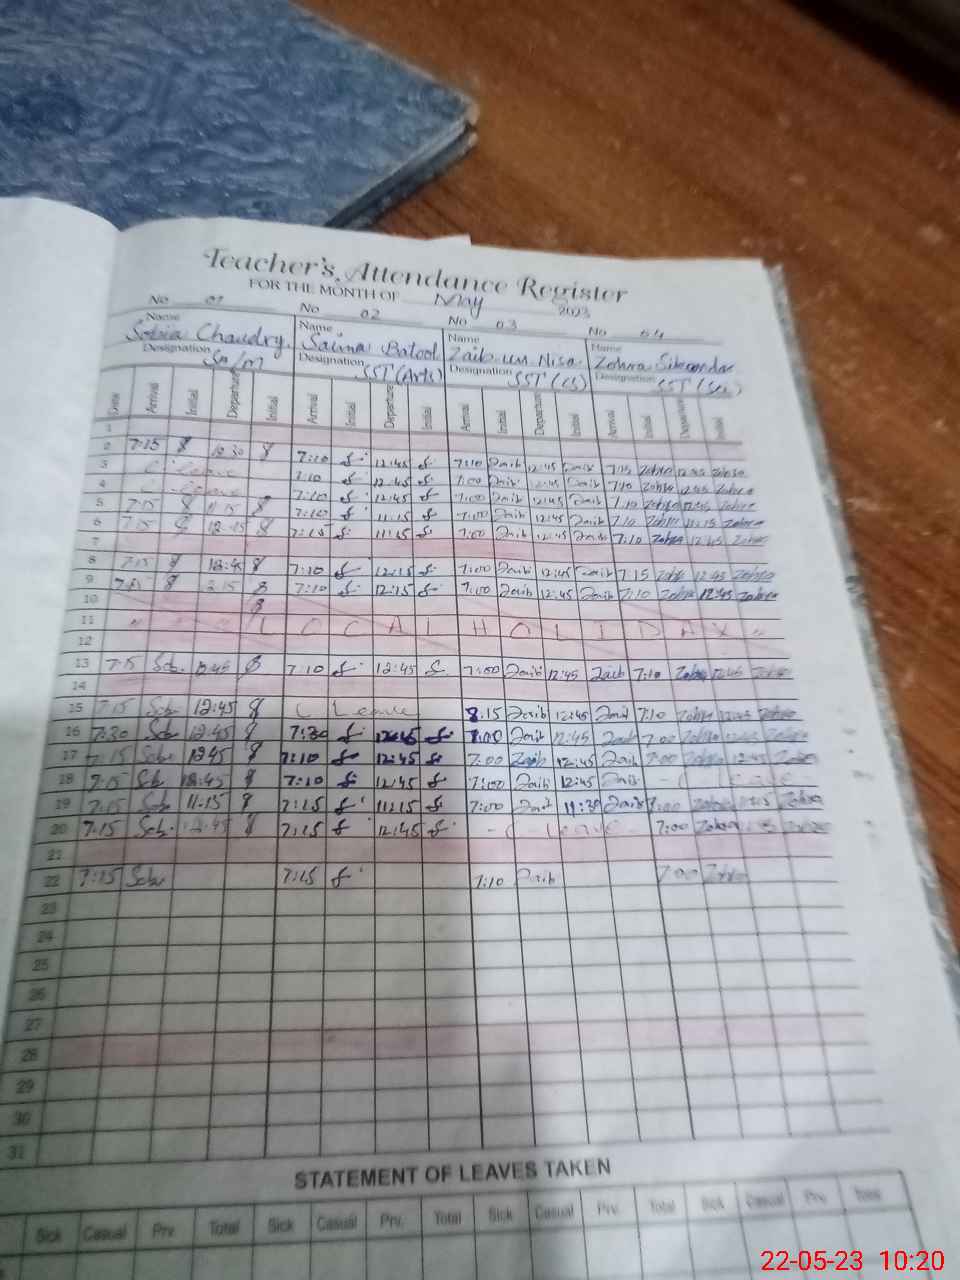 Teacher's Attendance Register
FOR THE MONTH OF May 2023
No 01 No 02 No 03 No 04
Name Name Name Name
Sobia Chaudry. Saima Batool Zaib un Nisa. Zohra Sikandar
Designation Designation Designation Designation
SST (Arts) SST (CS)
Date Arrival Initial Departure Initial Arrival Initial Departure Initial Arrival Initial Departure Initial Arrival Initial Departure Initial
1
2 7:15 7:10 12:45 7:10 Zaib 12:45 Zaib 7:15 Zohra 12:45 Zohra
3 C Leave 7:10 12:45 7:00 Zaib 12:45 Zaib 7:10 Zohra 12:45 Zohra
4 C Leave 7:10 12:45 7:00 Zaib 12:45 Zaib 7:10 Zohra 12:45 Zohra
5 7:15 11:15 7:10 11:15 7:00 Zaib 12:45 Zaib 7:10 Zohra 11:15 Zohra
6 7:15 12:45 7:15 11:45 7:00 Zaib 12:45 Zaib 7:10 Zohra 12:45 Zohra
7
8 7:15 12:45 7:10 12:15 7:00 Zaib 12:45 Zaib 7:15 Zohra 12:45 Zohra
9 7:15 7:10 12:15 7:00 Zaib 12:45 Zaib 7:10 Zohra 12:45 Zohra
10
11 LOCAL HOLIDAY
12
13 7:15 Sob. 12:45 7:10 12:45 7:00 Zaib 12:45 Zaib 7:10 Zohra 12:45 Zohra
14
15 7:15 Sob 12:45 C Leave 8:15 Zaib 12:45 Zaib 7:10 Zohra 12:45 Zohra
16 7:30 Sob 12:45 7:30 12:45 7:00 Zaib 12:45 Zaib 7:00 Zohra 12:45 Zohra
17 7:15 Sob. 12:45 7:10 12:45 7:00 Zaib 12:45 Zaib 7:00 Zohra 12:45 Zohra
18 7:15 Sob. 12:45 7:10 12:45 7:00 Zaib 12:45 Zaib - C Leave
19 7:15 Sob. 11:15 7:15 11:15 7:00 Zaib 11:30 Zaib 7:00 Zohra 11:15 Zohra
20 7:15 Sob. 12:45 7:15 12:45 - C Leave - 7:00 Zohra Zohra
21
22 7:15 Sob 7:15 7:10 Zaib 7:00 Zohra
23
24
25
26
27
28
29
30
31
STATEMENT OF LEAVES TAKEN
Sick Casual Prv. Total Sick Casual Prv. Total Sick Casual Prv. Total Sick Casual Prv. Total
22-05-23 10:20